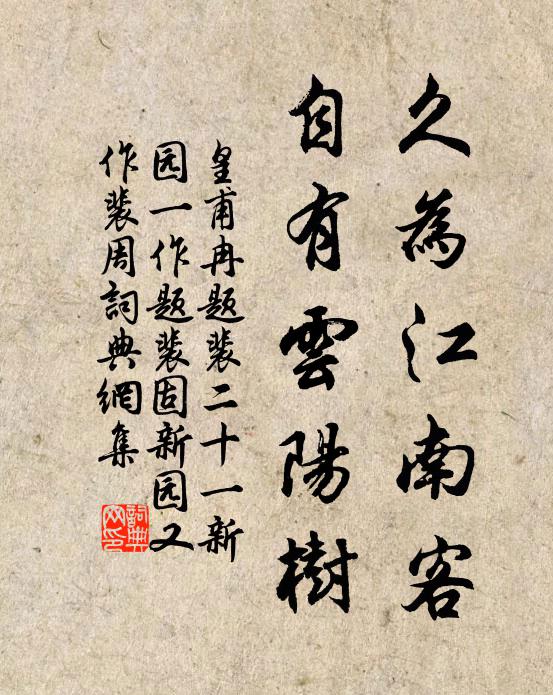 久為江南客
自有雲陽樹
皇甫冉題裴二十一新
园一作题裴固新园又
作裴周詞典網集
詞典网印